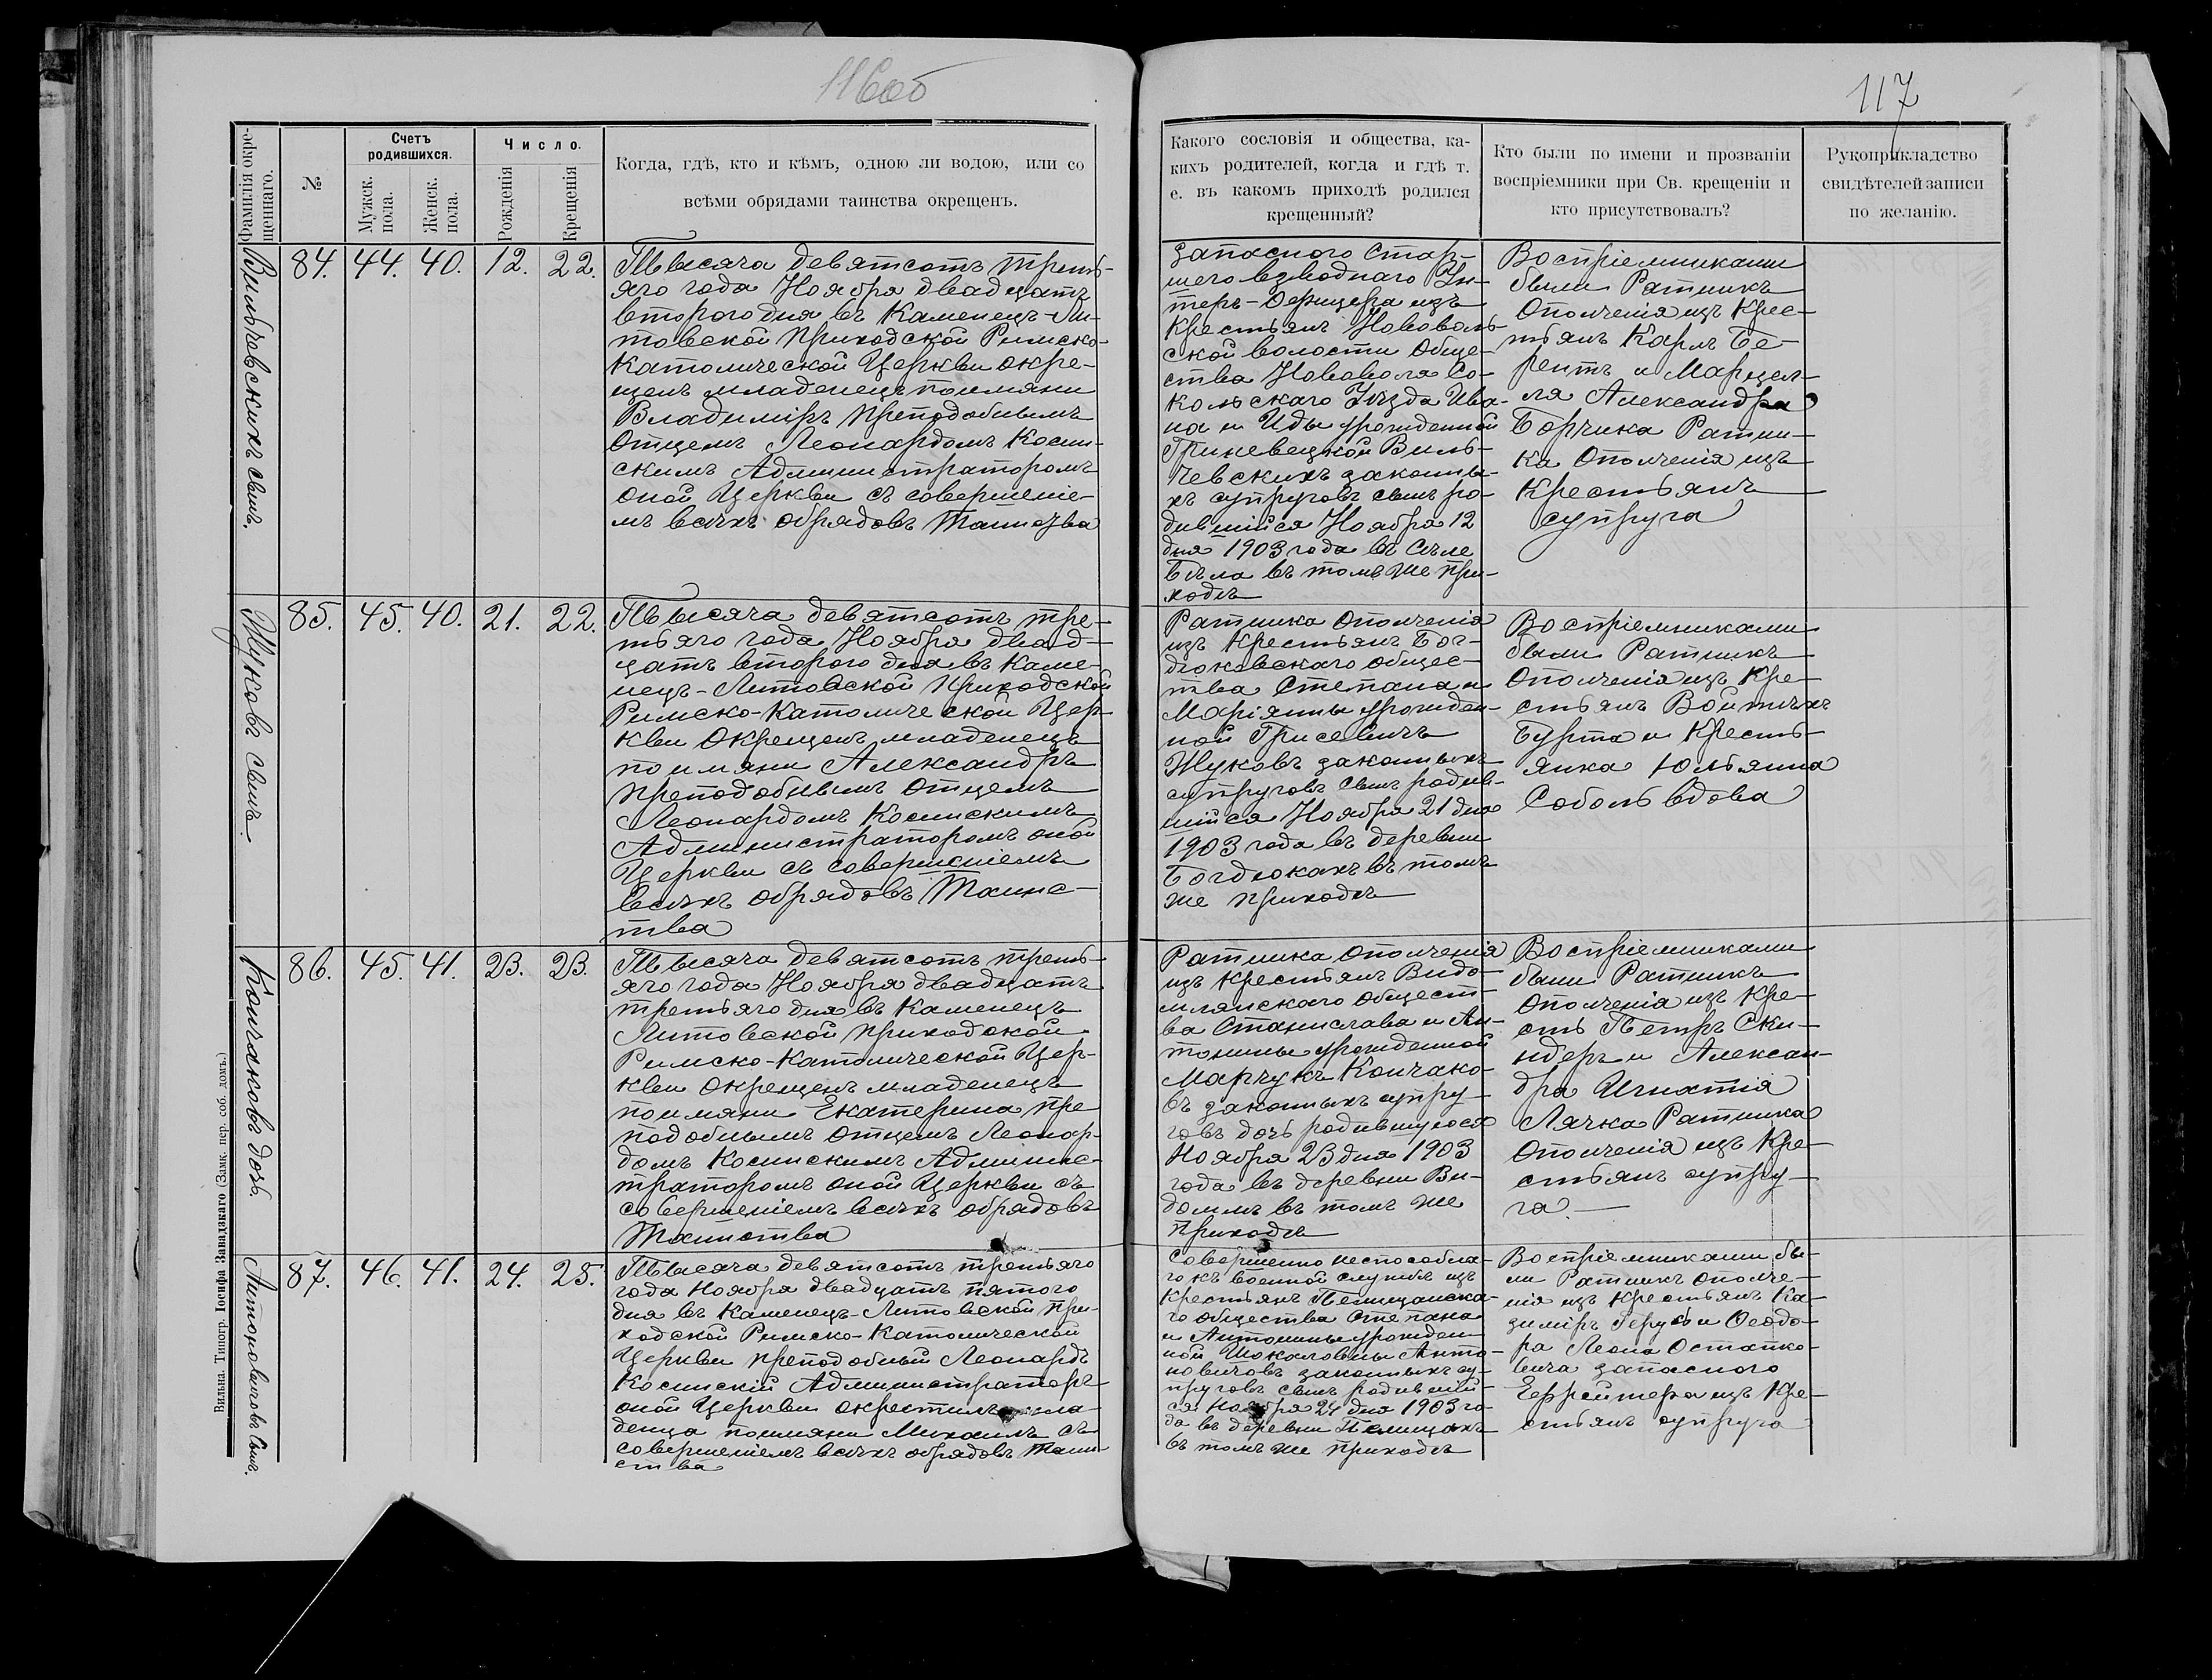 116 об
117
Фамилія окре-
щеннаго.
№
Счетъ
родившихся.
Мужск.
пола.
Женск.
пола.
Число.
Рожденія
Крещенія
Когда, гдѣ, кто и кѣмъ, одною ли водою, или со
всѣми обрядами таинства окрещенъ.
Какого сословія и общества, ка-
кихъ родителей, когда и гдѣ т.
е. въ какомъ приходѣ родился
крещенный?
Кто были по имени и прозваніи
воспріемники при Св. крещеніи и
кто присутствовалъ?
Рукоприкладство
свидѣтелей записи
по желанію.
Вильчевскихъ сынъ.
84. 44. 40. 12. 22.
Тысяча девятсотъ треть-
яго года Ноября двадцать
второго дня въ Каменецъ-Ли-
товской Приходской Римско-
Католической Церкви окре-
щенъ младенецъ поимяни
Владиміръ Преподобнымъ
Отцемъ Леонардомъ Косин-
скимъ Администраторомъ
оной Церкви съ совершеніе-
мъ всѣхъ обрядовъ Таинства
Запасного Стар-
шего взводнаго Ун-
теръ-Офицера изъ
Крестьянъ Нововоль-
ской волости Обще-
ства Нововоля Со-
кольскаго Уѣзда Ива-
на и Иды урожденной
Гриневецкой Виль-
чевскихъ законны-
хъ супруговъ сынъ ро-
дившійся Ноября 12
дня 1903 года въ Селе
Бѣла въ томъ же При-
ходѣ
Воспріемниками
были Ратникъ
Ополченія изъ Крес-
тьянъ Карлъ Бе-
рентъ и Марцел-
ля Александра
Борчика Ратни-
ка Ополченія изъ
Крестьянъ
супруга
Жуковъ сынъ
85. 45. 40. 21. 22.
Тысяча девятсотъ тре-
тьяго года Ноября двад-
цать второго дня въ Каме-
нецъ-Литовской Приходской
Римско-Католической Цер-
кви Окрещенъ младенецъ
поимяни Александръ
Преподобнымъ Отцемъ
Леонардомъ Косинскимъ
Администраторомъ оной
Церкви съ совершеніемъ
всѣхъ обрядовъ Таинс-
тва
Ратника Ополченія
изъ Крестьянъ Бог-
дюковскаго общес-
тва Степана и
Маріянны урожден-
ной Грисевичъ
Жуковъ законныхъ
супруговъ сынъ родив-
шійся Ноября 21 дня
1903 года въ деревни
Богдюкахъ въ томъ
же приходѣ
Воспріемниками
были Ратникъ
Ополченія изъ Кре-
стьянъ Войтѣхъ
Бурта и Кресть-
янка Юльянна
Соболь вдова
Кончаковъ дочь.
86. 45. 41. 23. 23.
Тысяча девятсотъ треть-
яго года Ноября двадцать
третьяго дня въ Каменецъ
Литовской приходской
Римско-Католической Цер-
кви окрещенъ младенецъ
поимяни Екатерина пре
подобнымъ отцемъ Леонар-
домъ Косинскимъ Админис-
траторомъ оной Церкви съ
совершеніемъ всѣхъ обрядовъ
Таинства
Ратника Ополченія
изъ Крестьянъ Видо-
млянскаго общест-
ва Станислава и Ан-
тонины урожденной
Марчукъ Кончако-
въ законныхъ супру-
говъ дочь родившуюся
Ноября 23 дня 1903
года въ деревни Ви-
домлѣ въ томъ же
приходѣ
Воспріемниками
были Ратникъ
Ополченія изъ Кре-
сть Петръ Ски-
ндеръ и Алексан-
дра Игнатія
Лячка Ратника
Ополченія изъ Кре-
стьянъ супру-
га.
Антоновичовъ сынъ.
87. 46. 41. 24. 25.
Тысяча девятсотъ третьяго
года Ноября двадцать пятого
дня въ Каменецъ-Литовской При-
ходской Римско-Католической
Церкви преподобный Леонардъ
Косинскій Администраторъ
оной Церкви окрестилъ мла-
денца поимяни Михаилъ съ
совершеніемъ всѣхъ обрядовъ Таин
ства
Совершенно неспособна-
го къ военной службѣ изъ
Крестьянъ Пелищанска-
го общества Степана
и Антонины урожден
ной Шокаловны Анто-
новичовъ законныхъ су-
пруговъ сынъ родившій-
ся Ноября 24 дня 1903 го
да въ деревни Пелищахъ
въ томъ же приходѣ
Воспріемниками бы-
ли Ратникъ ополче-
нія изъ Крестьянъ Ка-
зиміръ Герусъ и Ѳеодо-
ра Леона Остапко-
вича запасного
Ефрейтера изъ Кре-
стьянъ супруга
Вильна. Типогр. Іосифа Завадзкаго (Замк. пер. соб. домъ.)